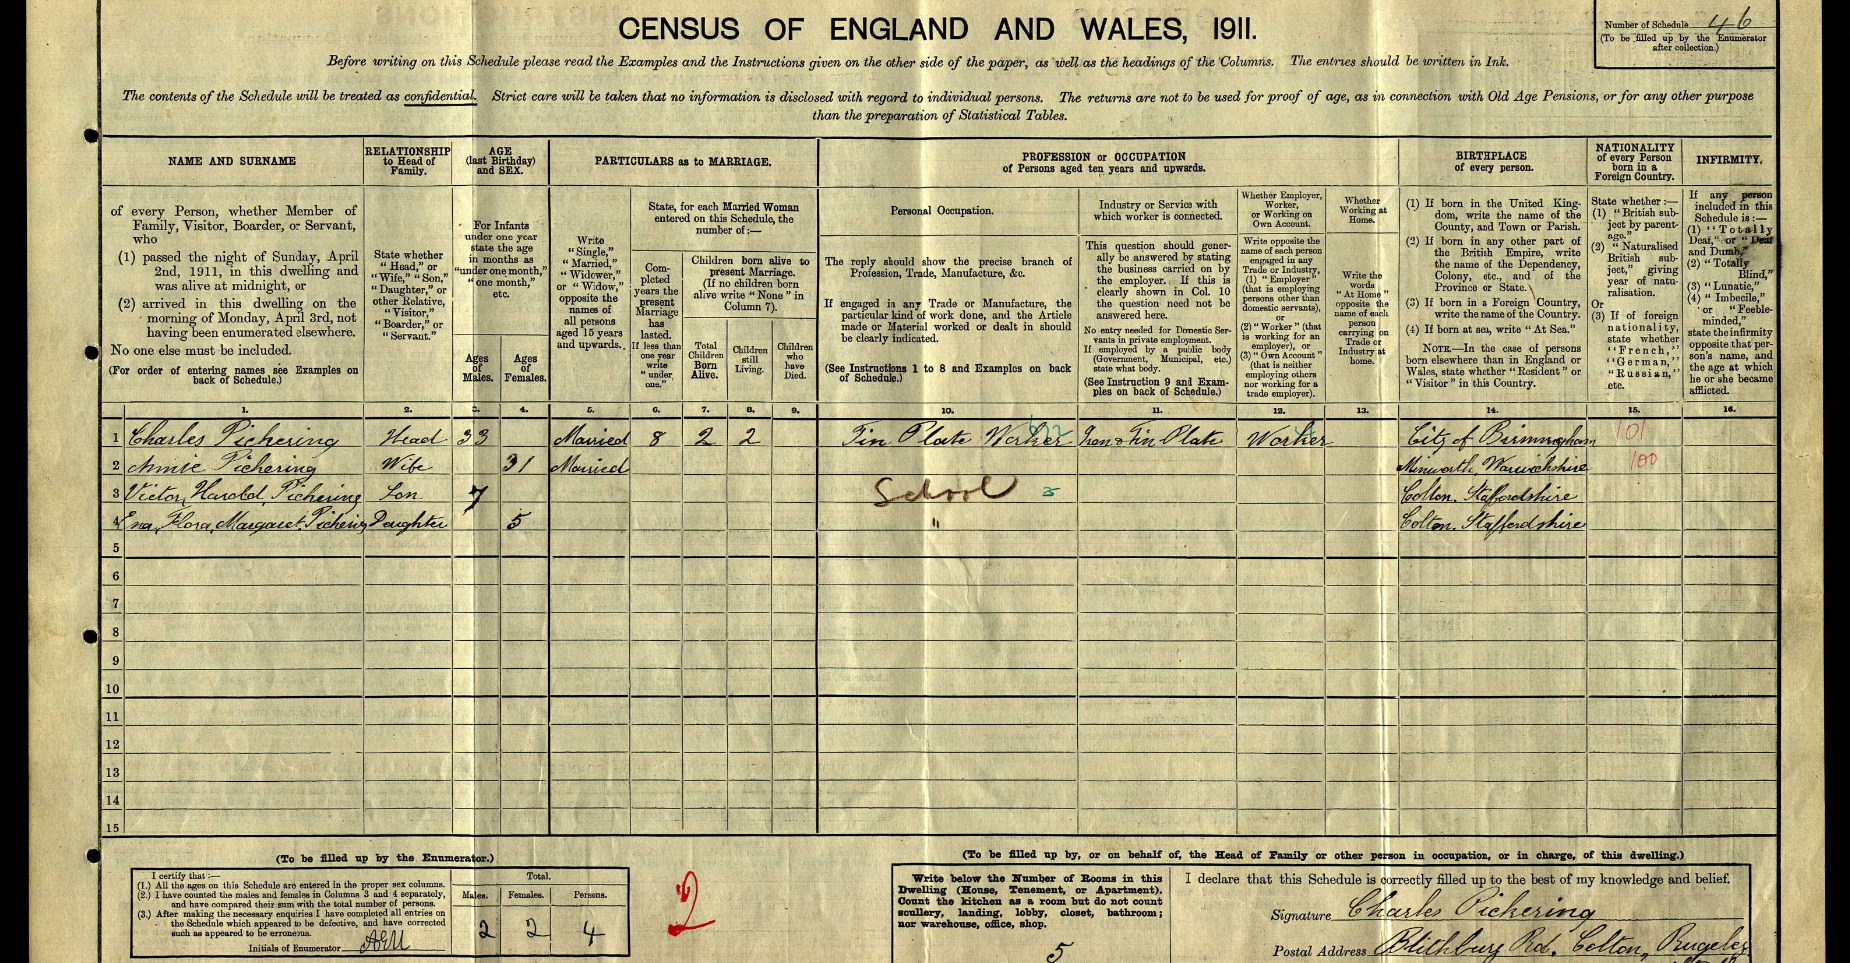 CENSUS OF ENGLAND AND WALES, 1911.
Number of Schedule 46
(To be filled up by the Enumerator
after collection.)
Before writing on this Schedule please read the Examples and the Instructions given on the other side of the paper, as well as the headings of the Columns. The entries should be written in Ink.
The contents of the Schedule will be treated as confidential. Strict care will be taken that no information is disclosed with regard to individual persons. The returns are not to be used for proof of age, as in connection with Old Age Pensions, or for any other purpose
than the preparation of Statistical Tables.
NAME AND SURNAME
of every Person, whether Member of
Family, Visitor, Boarder, or Servant,
who
(1) passed the night of Sunday, April
2nd, 1911, in this dwelling and
was alive at midnight, or
(2) arrived in this dwelling on the
morning of Monday, April 3rd, not
having been enumerated elsewhere.
No one else must be included.
(For order of entering names see Examples on
back of Schedule.)
RELATIONSHIP
to Head of
Family.
State whether
"Head," or
"Wife," "Son,"
"Daughter," or
other Relative,
"Visitor,"
"Boarder," or
"Servant."
AGE
(last Birthday)
and SEX.
For Infants
under one year
state the age
in months as
"under one month,"
"one month,"
etc.
Ages
of
Males.
Ages
of
Females.
PARTICULARS as to MARRIAGE.
Write
"Single,"
"Married,"
"Widower,"
or "Widow,"
opposite the
names of
all persons
aged 15 years
and upwards.
State, for each Married Woman
entered on this Schedule, the
number of:—
Com-
pleted
years the
present
Marriage
has
lasted.
If less than
one year
write
"under
one."
Children born alive to
present Marriage.
(If no children born
alive write "None" in
Column 7).
Total
Children
Born
Alive.
Children
still
Living.
Children
who
have
Died.
PROFESSION or OCCUPATION
of Persons aged ten years and upwards.
Personal Occupation.
The reply should show the precise branch of
Profession, Trade, Manufacture, &c.
If engaged in any Trade or Manufacture, the
particular kind of work done, and the Article
made or Material worked or dealt in should
be clearly indicated.
(See Instructions 1 to 8 and Examples on back
of Schedule.)
Industry or Service with
which worker is connected.
This question should gener-
ally be answered by stating
the business carried on by
the employer. If this is
clearly shown in Col. 10
the question need not be
answered here.
No entry needed for Domestic Ser-
vants in private employment.
If employed by a public body
(Government, Municipal, etc.)
state what body.
(See Instruction 9 and Exam-
ples on back of Schedule.)
Whether Employer,
Worker,
or Working on
Own Account.
Write opposite the
name of each person
engaged in any
Trade or Industry,
(1) "Employer"
(that is employing
persons other than
domestic servants),
or
(2) "Worker" (that
is working for an
employer), or
(3) "Own Account"
(that is neither
employing others
nor working for a
trade employer).
Whether
Working at
Home.
Write the
words
"At Home"
opposite the
name of each
person
carrying on
Trade or
Industry at
home.
BIRTHPLACE
of every person.
(1) If born in the United King-
dom, write the name of the
County, and Town or Parish.
(2) If born in any other part of
the British Empire, write
the name of the Dependency,
Colony, etc., and of the
Province or State.
(3) If born in a Foreign Country,
write the name of the Country.
(4) If born at sea, write "At Sea."
NOTE.—In the case of persons
born elsewhere than in England or
Wales, state whether "Resident" or
"Visitor" in this Country.
NATIONALITY
of every Person
born in a
Foreign Country.
State whether:—
(1) "British sub-
ject by parent-
age."
(2) "Naturalised
British sub-
ject," giving
year of natu-
ralisation.
Or
(3) If of foreign
nationality,
state whether
"French,"
"German,"
"Russian,"
etc.
INFIRMITY.
If any person
included in this
Schedule is:—
(1) "Totally
Deaf," or "Deaf
and Dumb,"
(2) "Totally
Blind,"
(3) "Lunatic,"
(4) "Imbecile,"
or "Feeble-
minded,"
state the infirmity
opposite that per-
son's name, and
the age at which
he or she became
afflicted.
1. 2. 3. 4. 5. 6. 7. 8. 9. 10. 11. 12. 13. 14. 15. 16.
1 Charles Pickering Head 33 Married 8 2 2 Tin Plate Worker Iron & Tin Plate Worker City of Birmingham 101
2 Annie Pickering Wife 31 Married Minworth, Warwickshire 100
3 Victor, Harold Pickering Son 7 School Colton. Staffordshire
4 Ena, Flora, Margaret. Pickering Daughter 5 " Colton. Staffordshire
5
6
7
8
9
10
11
12
13
14
15
(To be filled up by the Enumerator.)
I certify that:—
(1.) All the ages on this Schedule are entered in the proper sex columns.
(2.) I have counted the males and females in Columns 3 and 4 separately,
and have compared their sum with the total number of persons.
(3.) After making the necessary enquiries I have completed all entries on
the Schedule which appeared to be defective, and have corrected
such as appeared to be erroneous.
Initials of Enumerator
Total.
Males. Females. Persons.
2 2 4
(To be filled up by, or on behalf of, the Head of Family or other person in occupation, or in charge, of this dwelling.)
Write below the Number of Rooms in this
Dwelling (House, Tenement, or Apartment).
Count the kitchen as a room but do not count
scullery, landing, lobby, closet, bathroom;
nor warehouse, office, shop.
5
I declare that this Schedule is correctly filled up to the best of my knowledge and belief.
Signature Charles Pickering
Postal Address Blithbury Rd. Colton, Rugeley